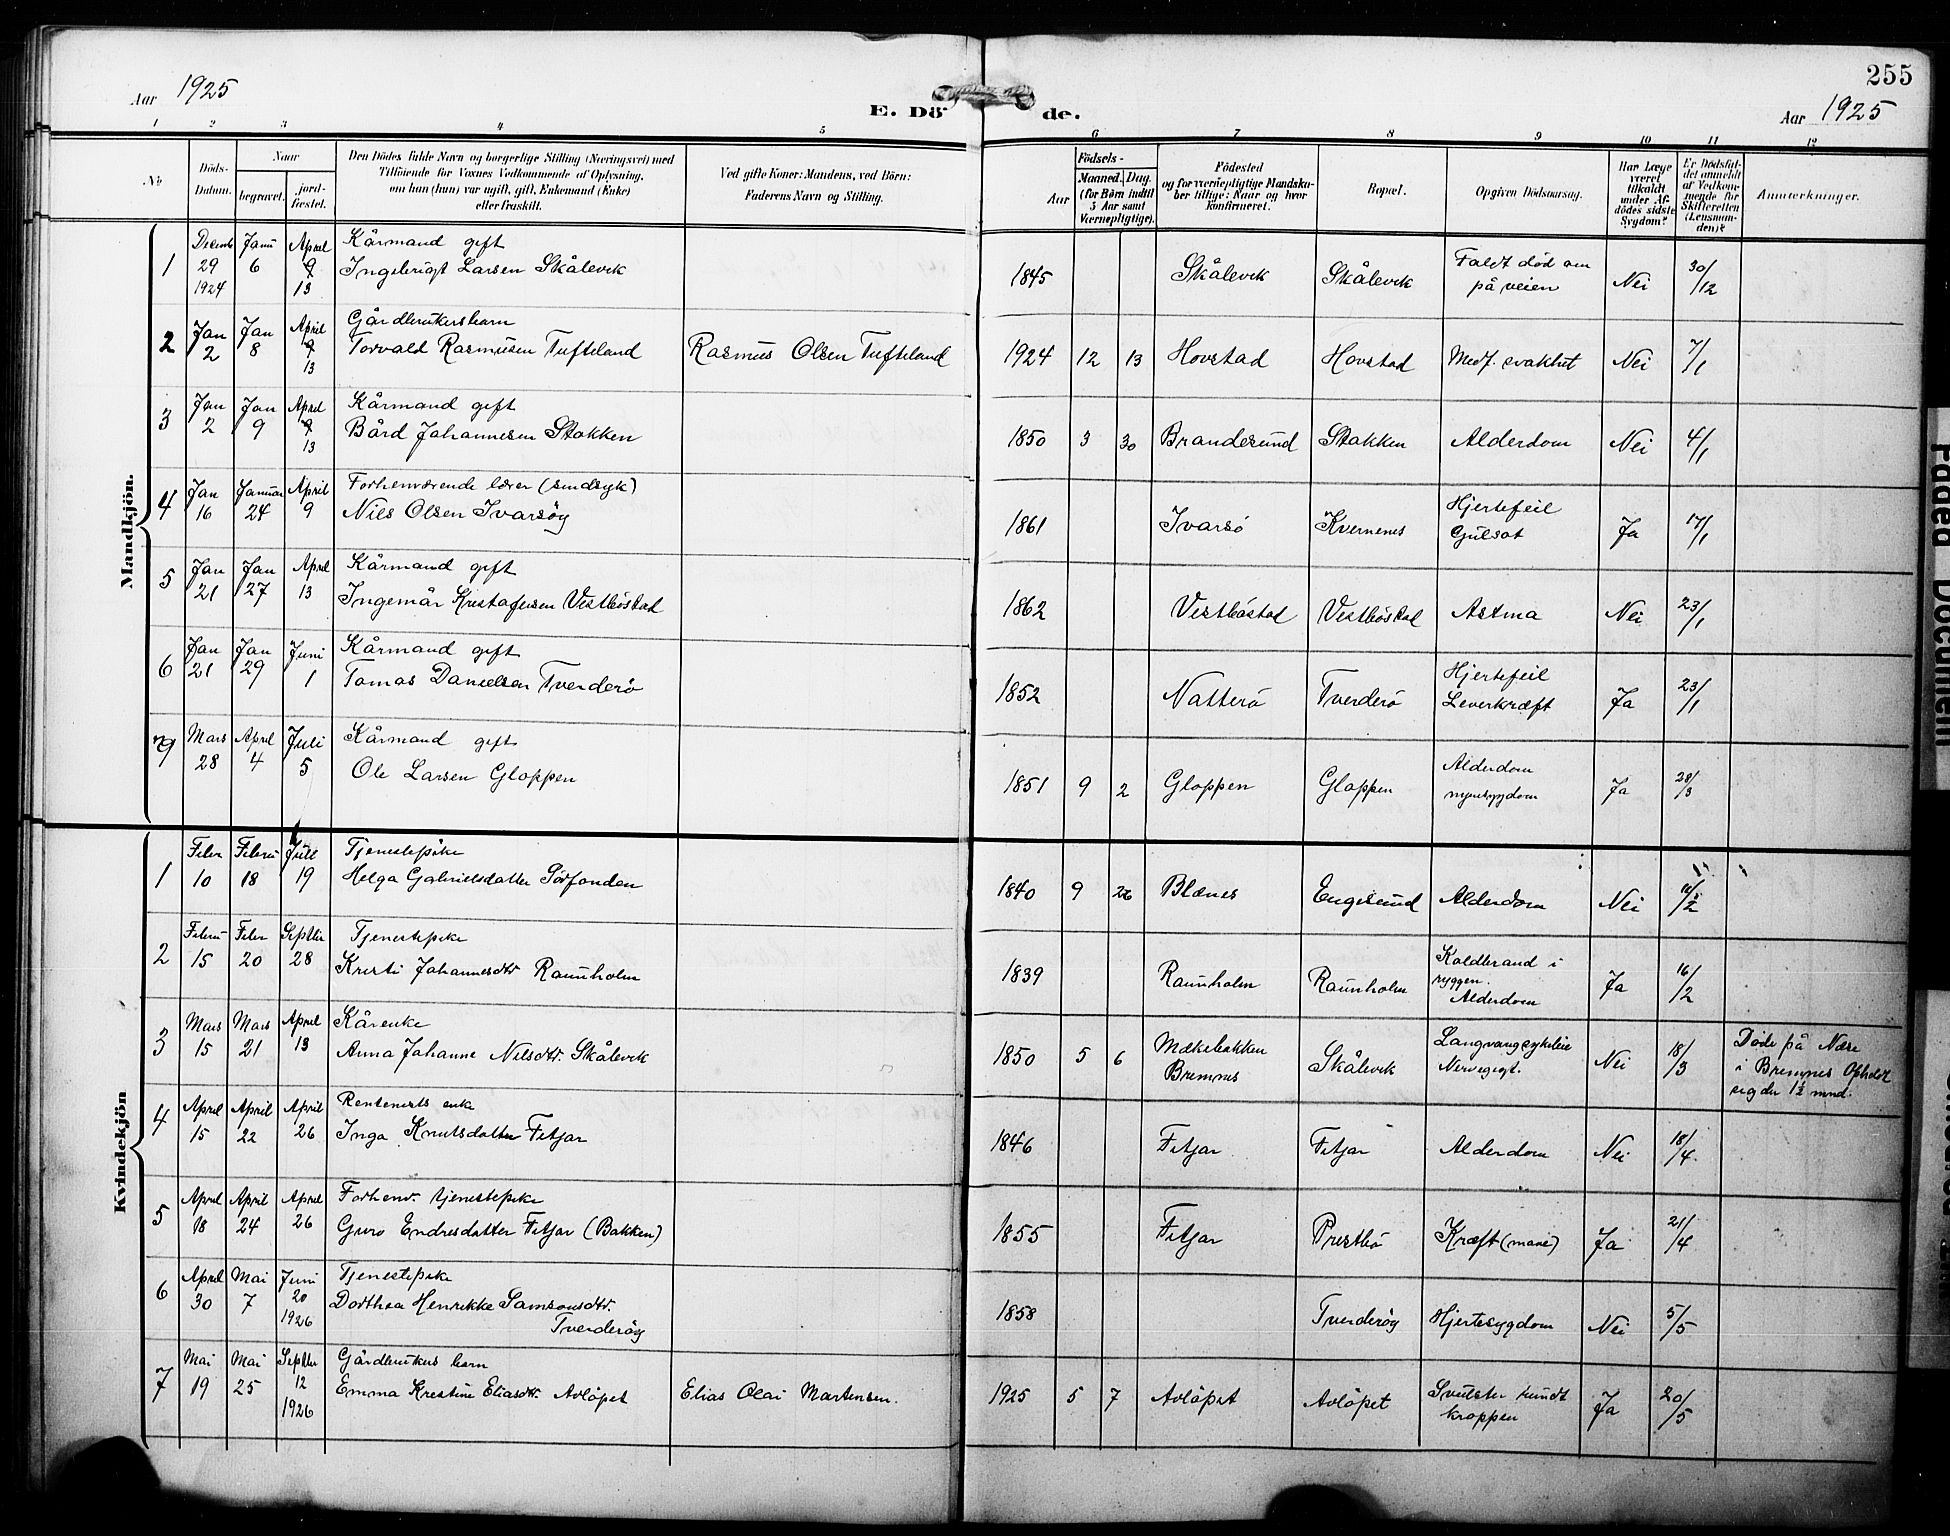 Aar 1925
E. Dö de.
255
Aar 1925
1 2 3 4 5 6 7 8 9 10 11 12
No
Döds-Datum.
Naar
begravet.
jord-fæstet.
Den Dödes fulde Navn og borgerlige Stilling (Næringsvei) med
Tilföiende for Voxnes Vedkommende af Oplysning,
om han (hun) var ugift, gift, Enkemand (Enke)
eller fraskilt.
Ved gifte Koner: Mandens, ved Börn:
Faderens Navn og Stilling.
Födsels-
Aar
Maaned. Dag.
(for Börn indtil
5 Aar samt
Værnepligtige).
Födested
og for værnepligtige Mandska-
ber tillige: Naar og hvor
konfirmeret.
Bopæl.
Opgiven Dödsaarsag.
Har Læge
været
tilkaldt
under Af-
dödes sidste
Sygdom?
Er Dödsfal-
det anmeldt
af Vedkom-
mende for
Skifteretten
(Lensman-
den)?
Anmærkninger.
Mandkjön.
1 Decemb 29 1924 Janu 6 April 9 13 Kårmand gift
Ingebrigt Larsen Skålevik 1845 Skålevik Skålevik Faldt död om
på veien Nei 30/12
2 Jan 2 Jan 8 April 9 13 Gårdbrukersbarn
Torvald Rasmusen Tufteland Rasmus Olsen Tufteland 1924 12 13 Hovstad Hovstad Medf. svakhet Nei 7/1
3 Jan 2 Jan 9 April 9 13 Kårmand gift
Bård Johannesen Stokken 1850 3 30 Brandesund Stokken Alderdom Nei 4/1
4 Jan 16 Januar 24 April 9 Forhenværende lærer (sindsyk)
Nils Olsen Ivarsöy 1861 Ivarsö Kvernenes Hjertefeil
Gulsot Ja 17/1
5 Jan 21 Jan 27 April 13 Kårmand gift
Ingemår Kristofersen Vestböstad 1862 Vestböstad Vestböstad Astma Nei 23/1
6 Jan 21 Jan 29 Juni 1 Kårmand gift
Tomas Danielsen Tverderö 1852 Natterö Tverderö Hjertefeil
Leverkræft Ja 23/1
7 Mars 28 April 4 Juli 5 Kårmand gift
Ole Larsen Gloppen 1851 9 2 Gloppen Gloppen Alderdom
nyresygdom Ja 28/3
Kvindekjön
1 Febr 10 Febru 18 Juli 19 Tjenestepike
Helga Gabrielsdatter Sörfonden 1840 9 26 Blænes Engesund Alderdom Nei 11/2
2 Febru 15 Febr 20 Septbr 28 Tjenestepike
Kristi Johannesdtr Raunholm 1839 Raunholm Raunholm Koldbrand i
ryggen.
Alderdom Ja 16/2
3 Mars 15 Mars 21 April 13 Kårenke
Anna Johanne Nilsdtr. Skålevik 1850 5 6 Mækebakken
Bremnes Skålevik Langvang sykeleie
Nervegigt. Nei 18/3 Döde på Nære
i Bremnes Opholdt
sig der 1½ mnd.
4 April 15 April 22 April 26 Rentenists enke
Inga Knutsdatter Fitjar 1846 Fitjar Fitjar Alderdom Nei 18/4
5 April 18 April 24 April 26 Forhenv. tjenestepike
Guro Endresdatter Fitjar (Bakken) 1855 Fitjar Prestbö Kræft (mave) Ja 21/4
6 April 30 Mai 7 Juni 20 1926 Tjenestepike
Dorthea Henrikke Samsonsdtr.
Tverderöy 1858 Tverderöy Hjertesygdom Nei 5/5
7 Mai 19 Mai 25 Septbr 12 1926 Gårdbrukers barn
Emma Kristine Eliasdtr. Avlöpet Elias Olai Martensen. 1925 5 7 Avlöpet Avlöpet Svulster rundt
kroppen Ja 20/5